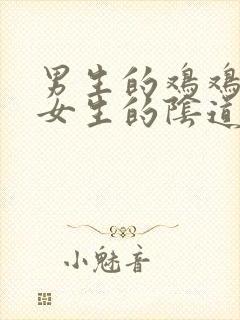 男生的鸡鸡
女生的陰道
小魅音